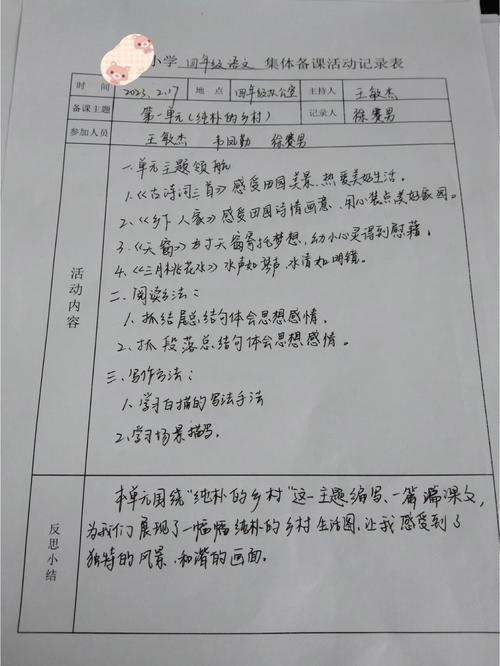 小学 四年级 语文 集体备课活动记录表
时间 2023.2.17 地点 四年级办公室 主持人 王敏杰
备课主题 第一单元(纯朴的乡村) 记录人 徐赛男
参加人员 王敏杰 韦凤勤 徐赛男
活动内容
一.单元主题领航
1.《古诗词三首》感受田园美景、热爱美好生活。
2.《乡下人家》感受田园诗情画意,用心装点美好家园。
3.《天窗》方寸天窗寄托梦想,幼小心灵得到慰藉。
4.《三月桃花水》水声如琴声,水清如明镜。
二.阅读方法:
1.抓结尾总结句体会思想感情。
2.抓段落总结句体会思想感情。
三.写作方法:
1.学习白描的写法手法
2.学习场景描写。
反思小结
本单元围绕“纯朴的乡村”这一主题编写、一篇篇课文,
为我们展现了一幅幅纯朴的乡村生活图,让我感受到了
独特的风景、和谐的画面。